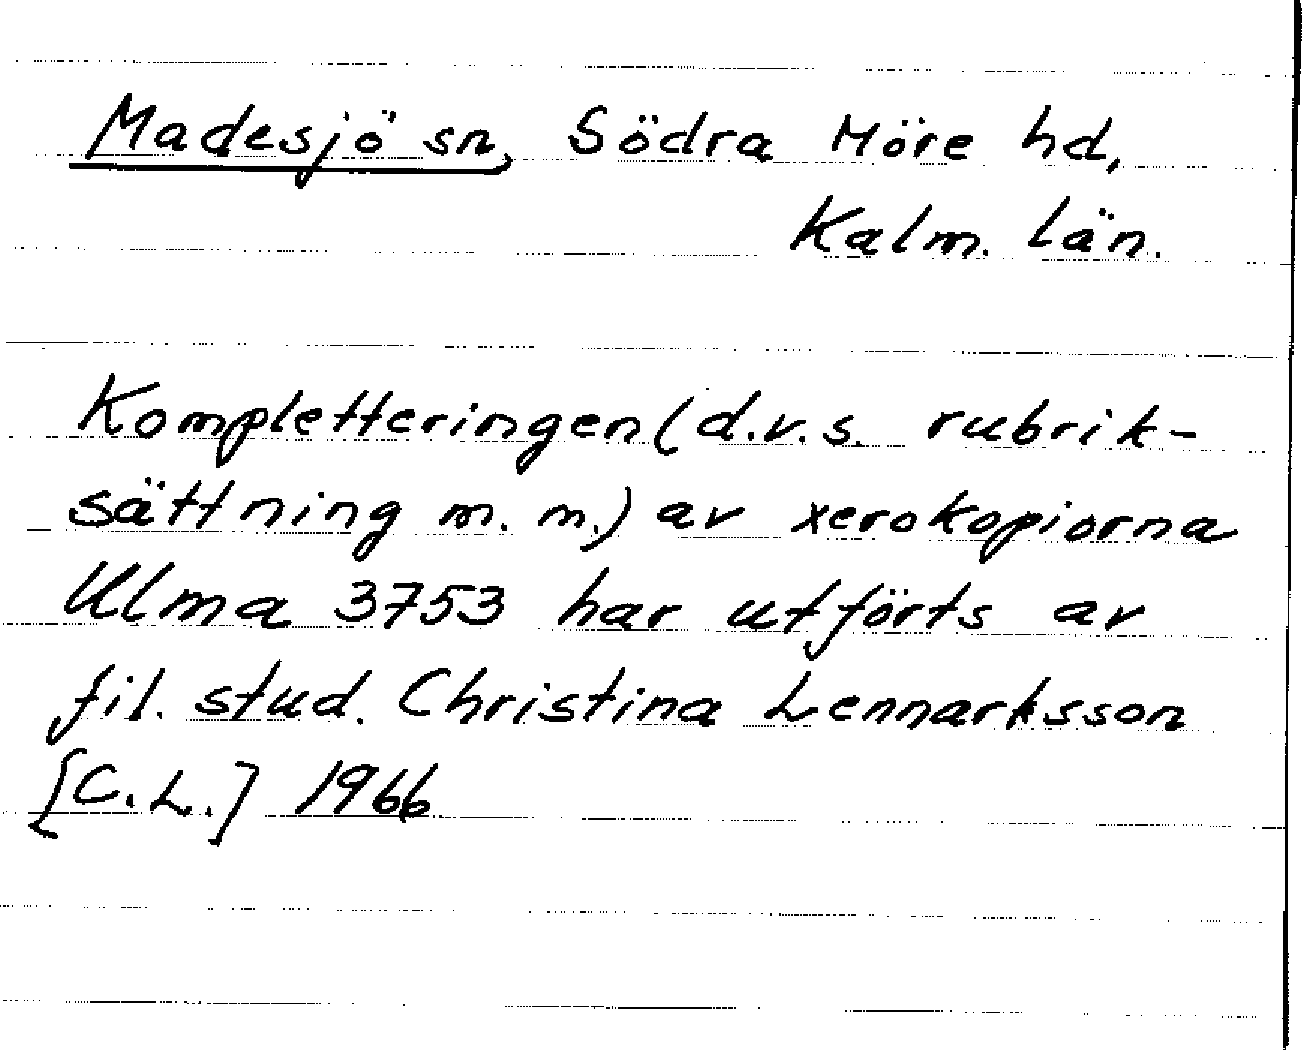 Madesjö sn, Södra Möre hd,
Kalm. län.
Kompletteringen (d.v.s. rubrik-
sättning m. m.) av xerokopiorna
Ulma 3753 har utförts av
fil. stud. Christina Lennartsson
[C.L.] 1966